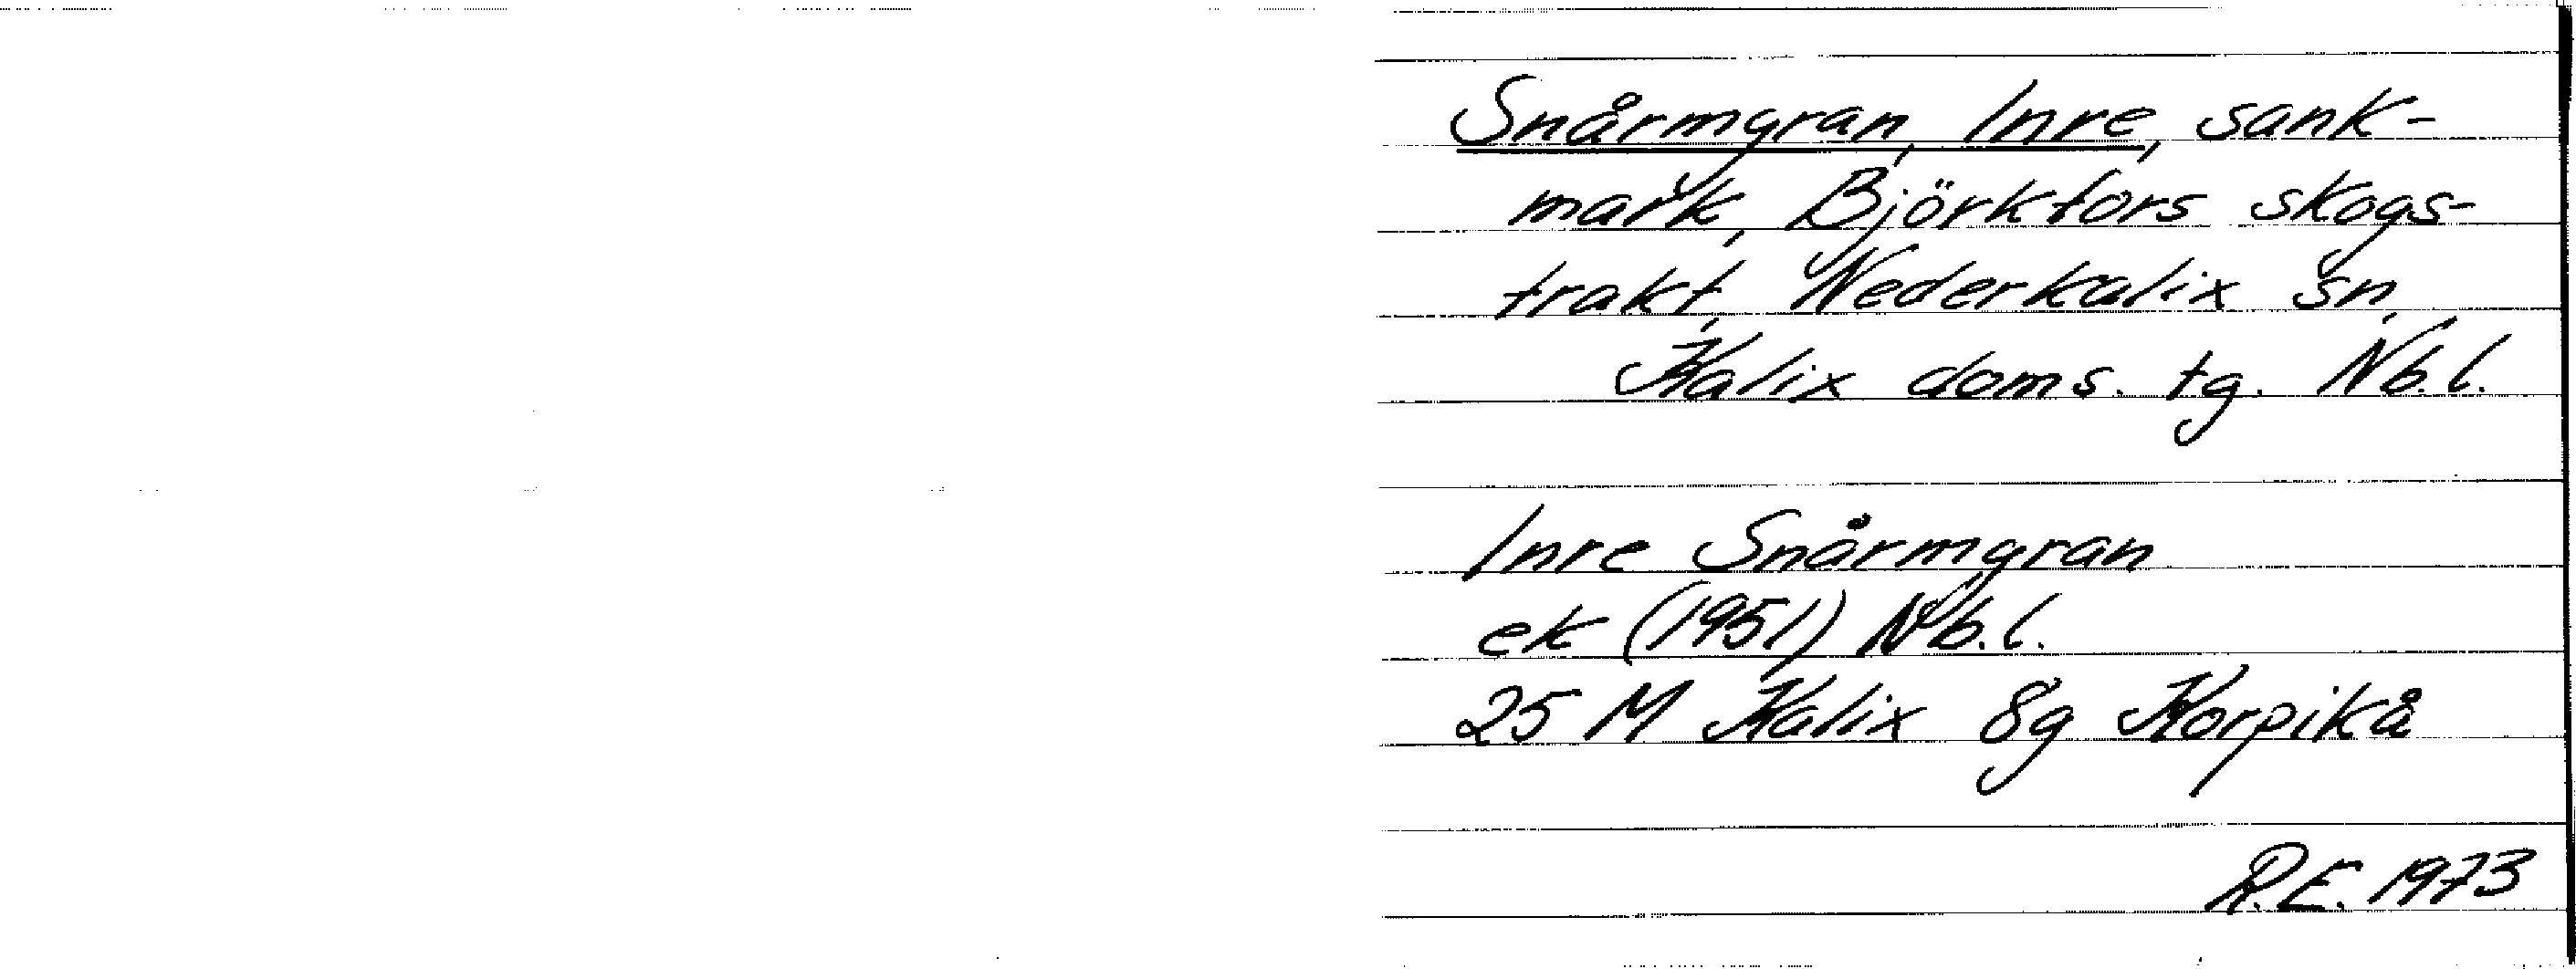 Snårmyran, Inre, sank-
mark, Björkfors skogs-
trakt, Nederkalix sn,
Kalix doms. tg. Nb.l.
Inre Snårmyran
ek (1951) Nb.l.
25 M Kalix 8g Korpikå
R.E. 1973